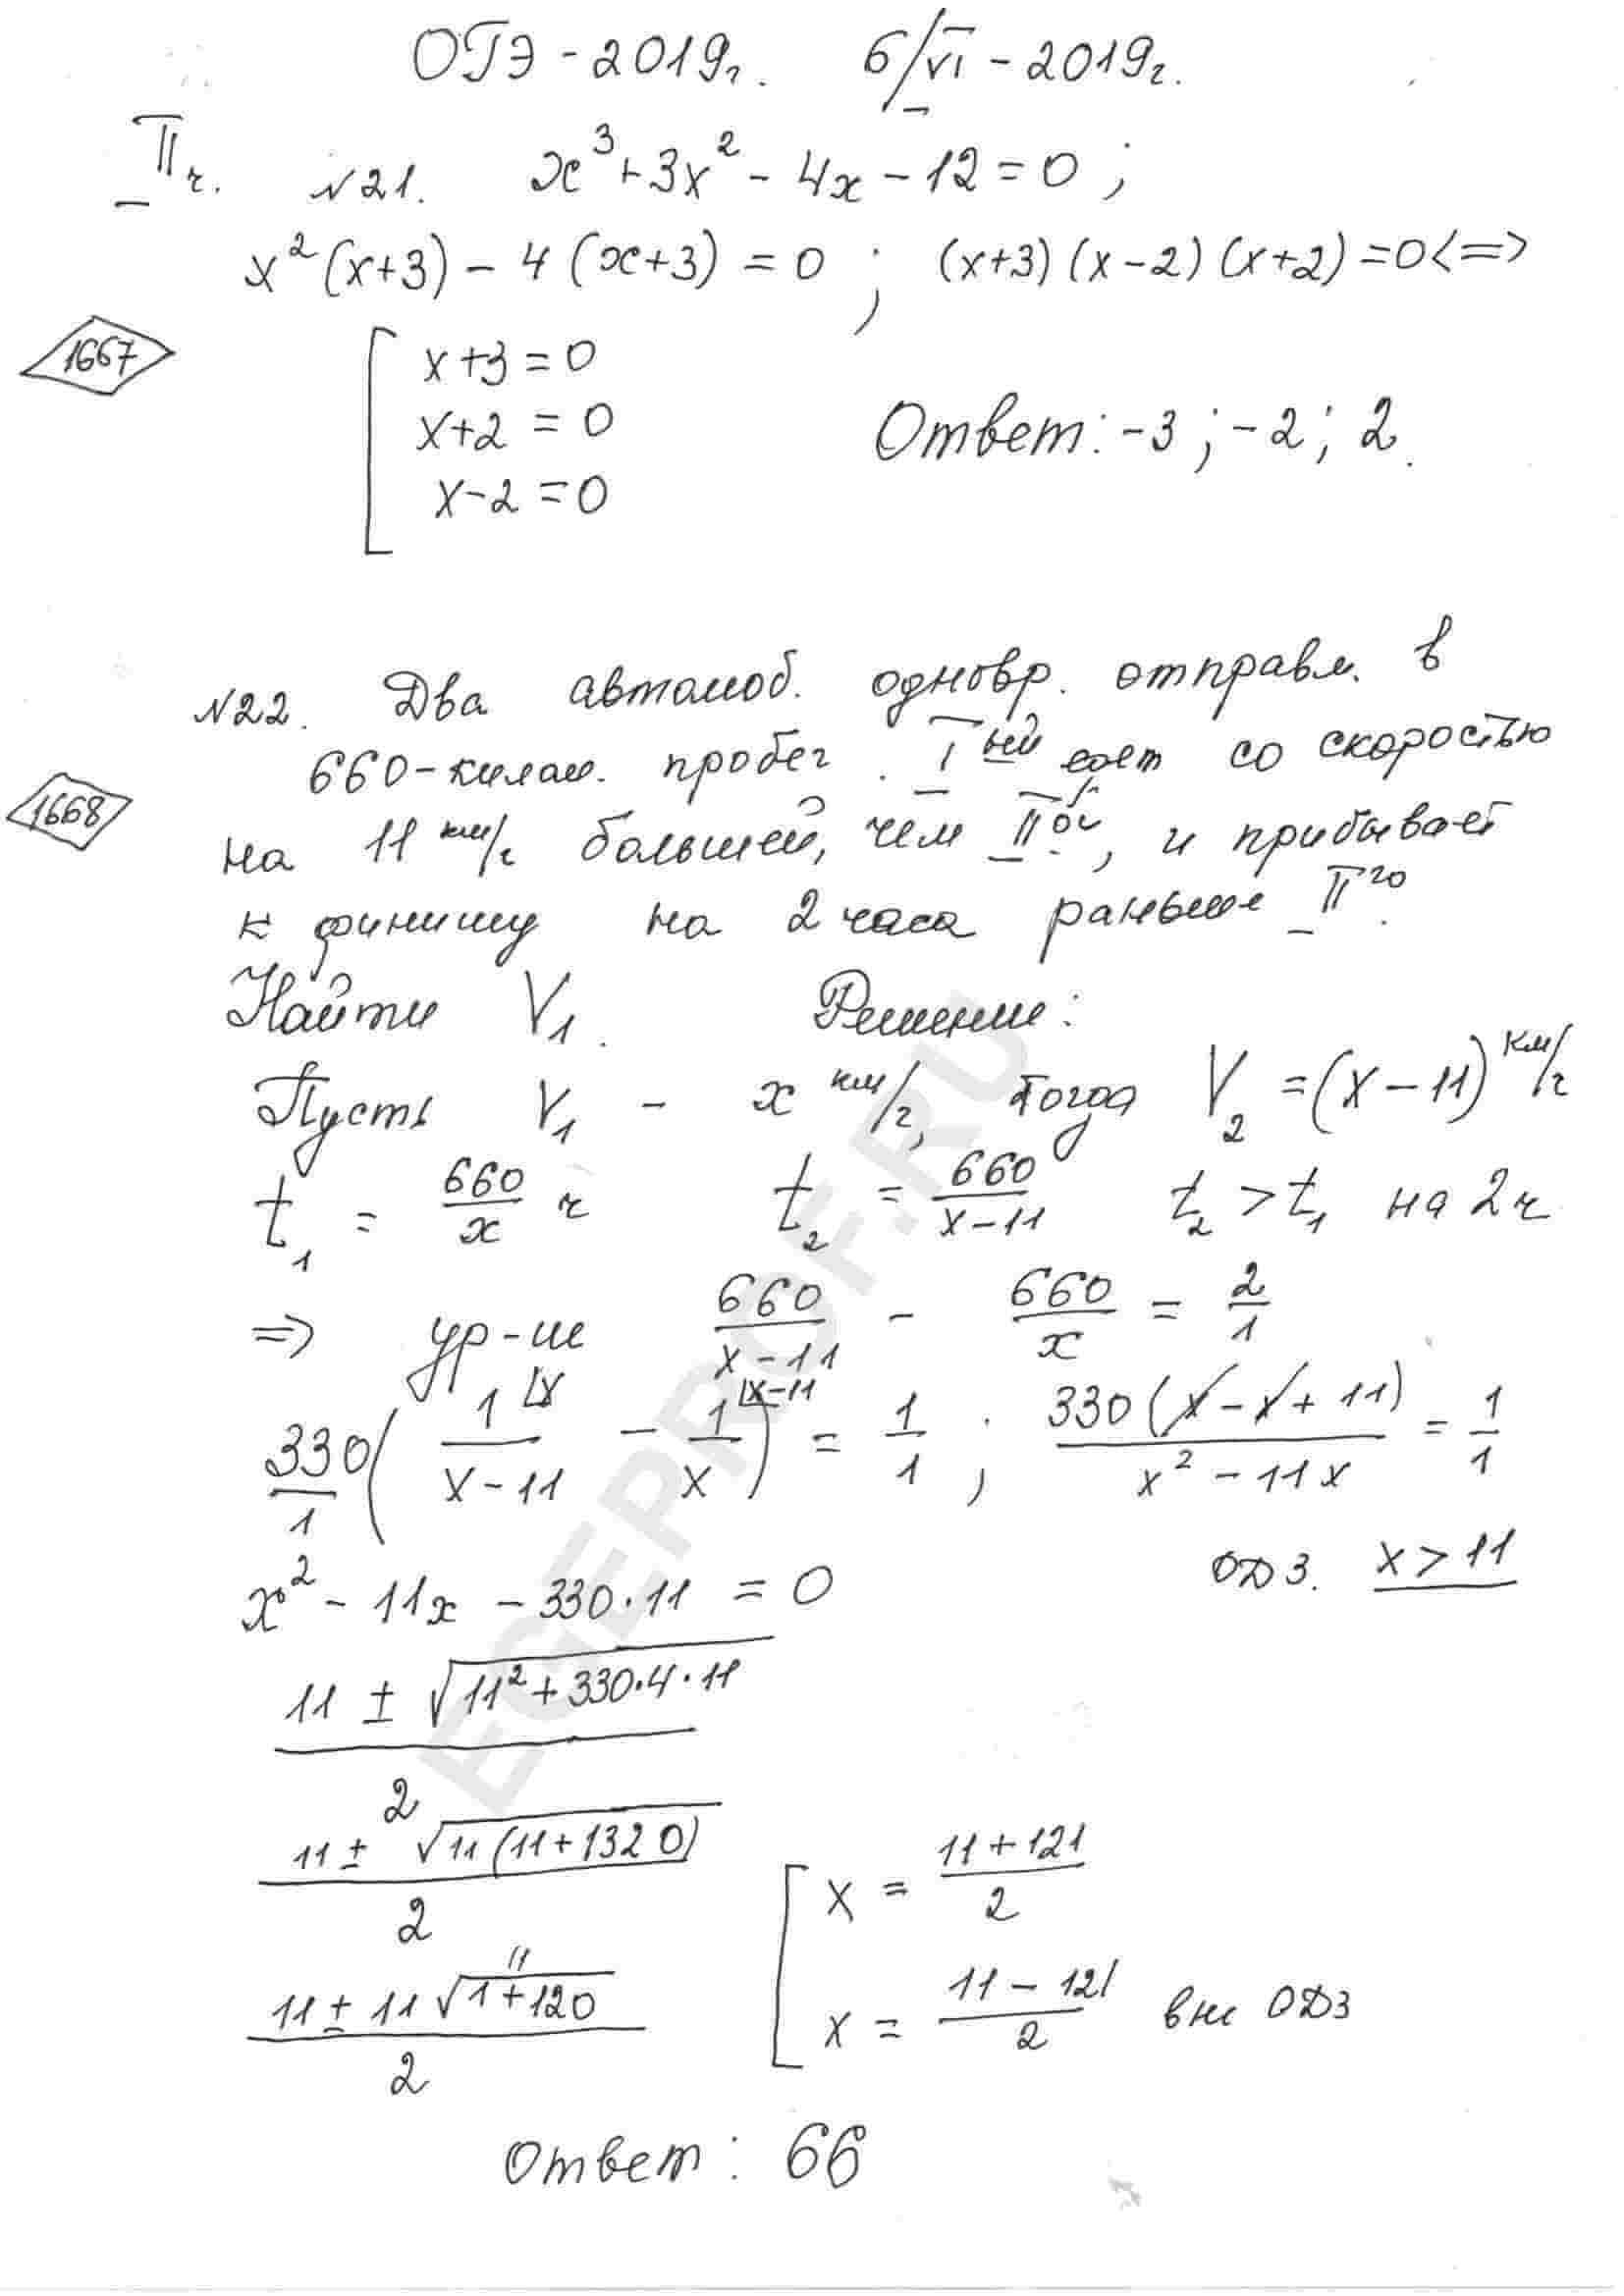 ОГЭ - 2019г. 6/VI - 2019г.
II ч. №21. x³ + 3x² - 4x - 12 = 0 ;
x²(x+3) - 4(x+3) = 0 ; (x+3)(x-2)(x+2) = 0 <=>
1667
x+3 = 0
x+2 = 0
x-2 = 0
Ответ: -3 ; -2 ; 2.
№22. Два автомоб. одновр. отправл. в
660-килом. пробег. I ый едет со скоростью
1668
на 11 км/ч большей, чем II ой, и прибывает
к финишу на 2 часа раньше II го.
Найти V₁. Решение:
Пусть V₁ - x км/ч, тогда V₂ = (x - 11) км/ч
t₁ = 660/x ч t₂ = 660/(x-11) t₂ > t₁ на 2ч
=> ур-ие 660/(x-11) - 660/x = 2/1
330/1 (1/(x-11) ⌊x - 1/x ⌊x-11) = 1/1 ; 330(x - x + 11)/(x² - 11x) = 1/1
x² - 11x - 330·11 = 0 ОДЗ. x > 11
(11 ± √(11² + 330·4·11))/2
(11 ± √(11(11+1320)))/2
(11 ± 11√(1+120))/2
x = (11 + 121)/2
x = (11 - 121)/2 вне ОДЗ
Ответ: 66
EGEPROF.RU